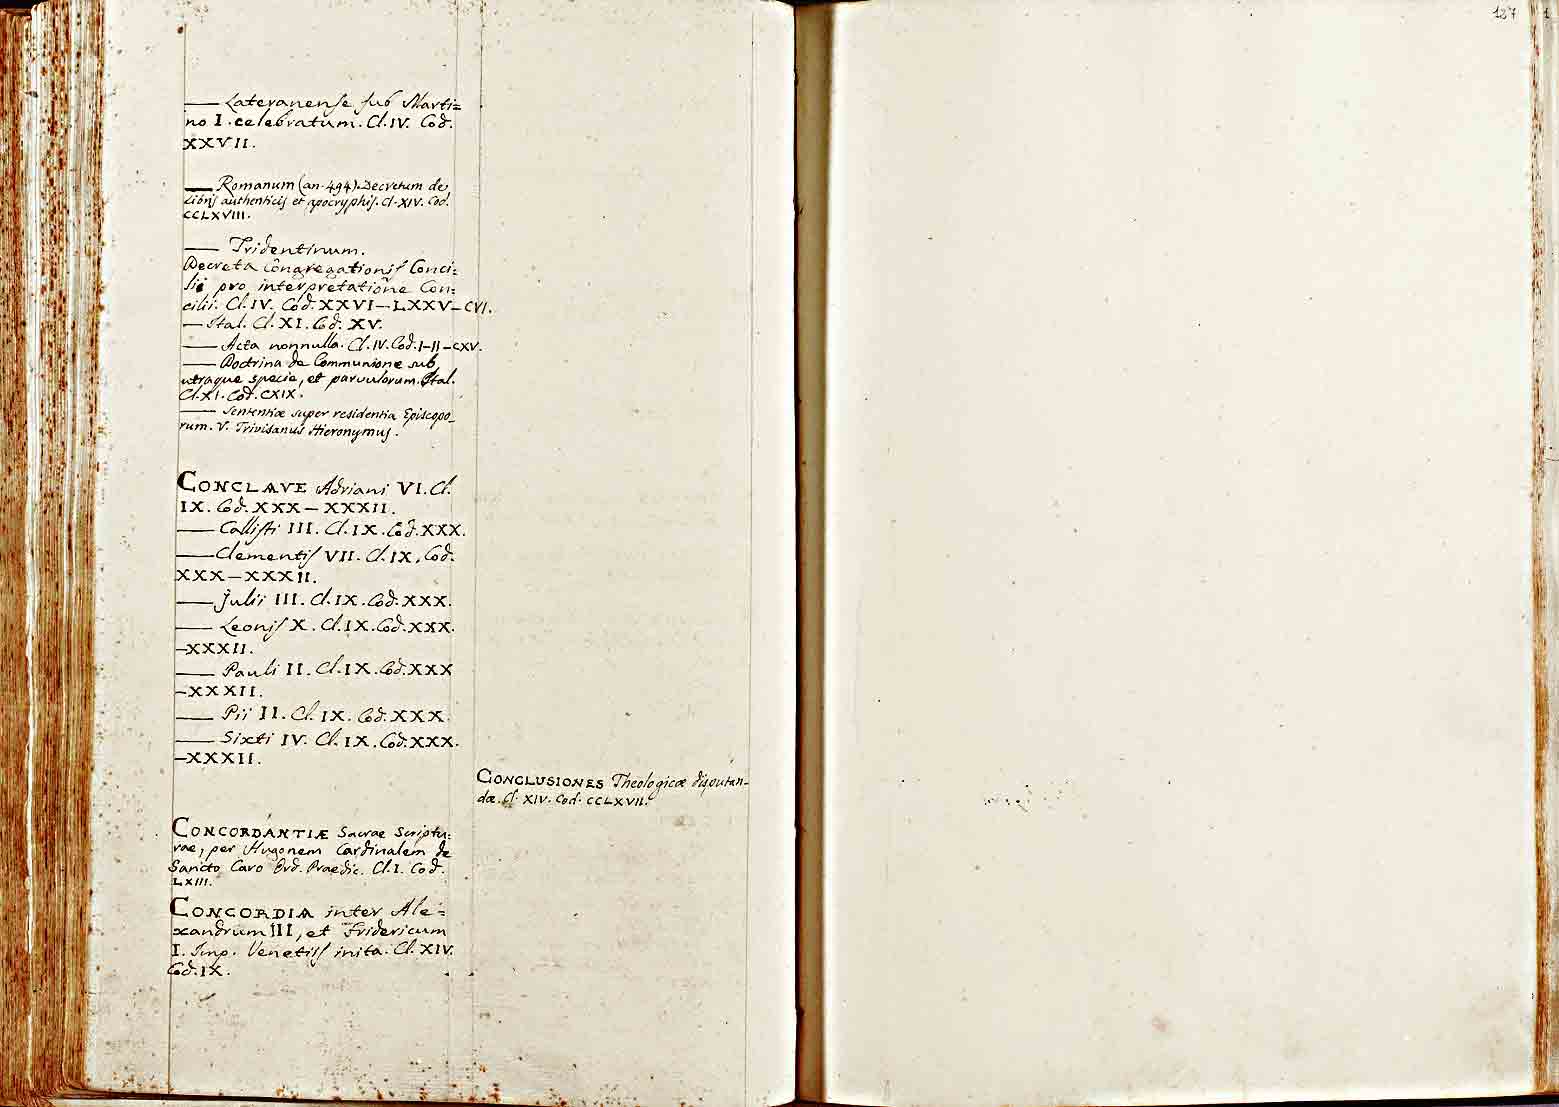 — Lateranense sub Marti=
no I. celebratum. Cl. IV. Cod.
XXVII.
— Romanum (an. 494). Decretum de
Libris authenticis et apocryphis. Cl. XIV. Cod.
CCLXVIII.
— Tridentinum.
Decreta Congregationis Conci=
lii pro interpretatione Con=
cilii. Cl. IV. Cod. XXVI – LXXV – CVI.
— Ital. Cl. XI. Cod. XV.
— Acta nonnulla. Cl. IV. Cod. I – II – CXV.
— Doctrina de Communione sub
utraque specie, et parvulorum. Ital.
Cl. XI. Cod. CXIX.
— Sententiæ super residentia Episcopo_
rum. V. Trivisanus Hieronymus.
CONCLAVE Adriani VI. Cl.
IX. Cod. XXX – XXXII.
— Callisti III. Cl. IX. Cod. XXX.
— Clementis VII. Cl. IX. Cod.
XXX – XXXII.
— Julii III. Cl. IX. Cod. XXX.
— Leonis X. Cl. IX. Cod. XXX.
– XXXII.
— Pauli II. Cl. IX. Cod. XXX
– XXXII.
— Pii II. Cl. IX. Cod. XXX.
— Sixti IV. Cl. IX. Cod. XXX.
– XXXII.
CONCORDANTIÆ Sacrae Scriptu=
rae, per Hugonem Cardinalem de
Sancto Caro Ord. Praedic. Cl. I. Cod.
LXIII.
CONCORDIA inter Ale=
xandrum III, et Fridericum
I. Imp. Venetiis inita. Cl. XIV.
Cod. IX.
CONCLUSIONES Theologicæ disputan_
dæ. Cl. XIV. Cod. CCLXVII.
127